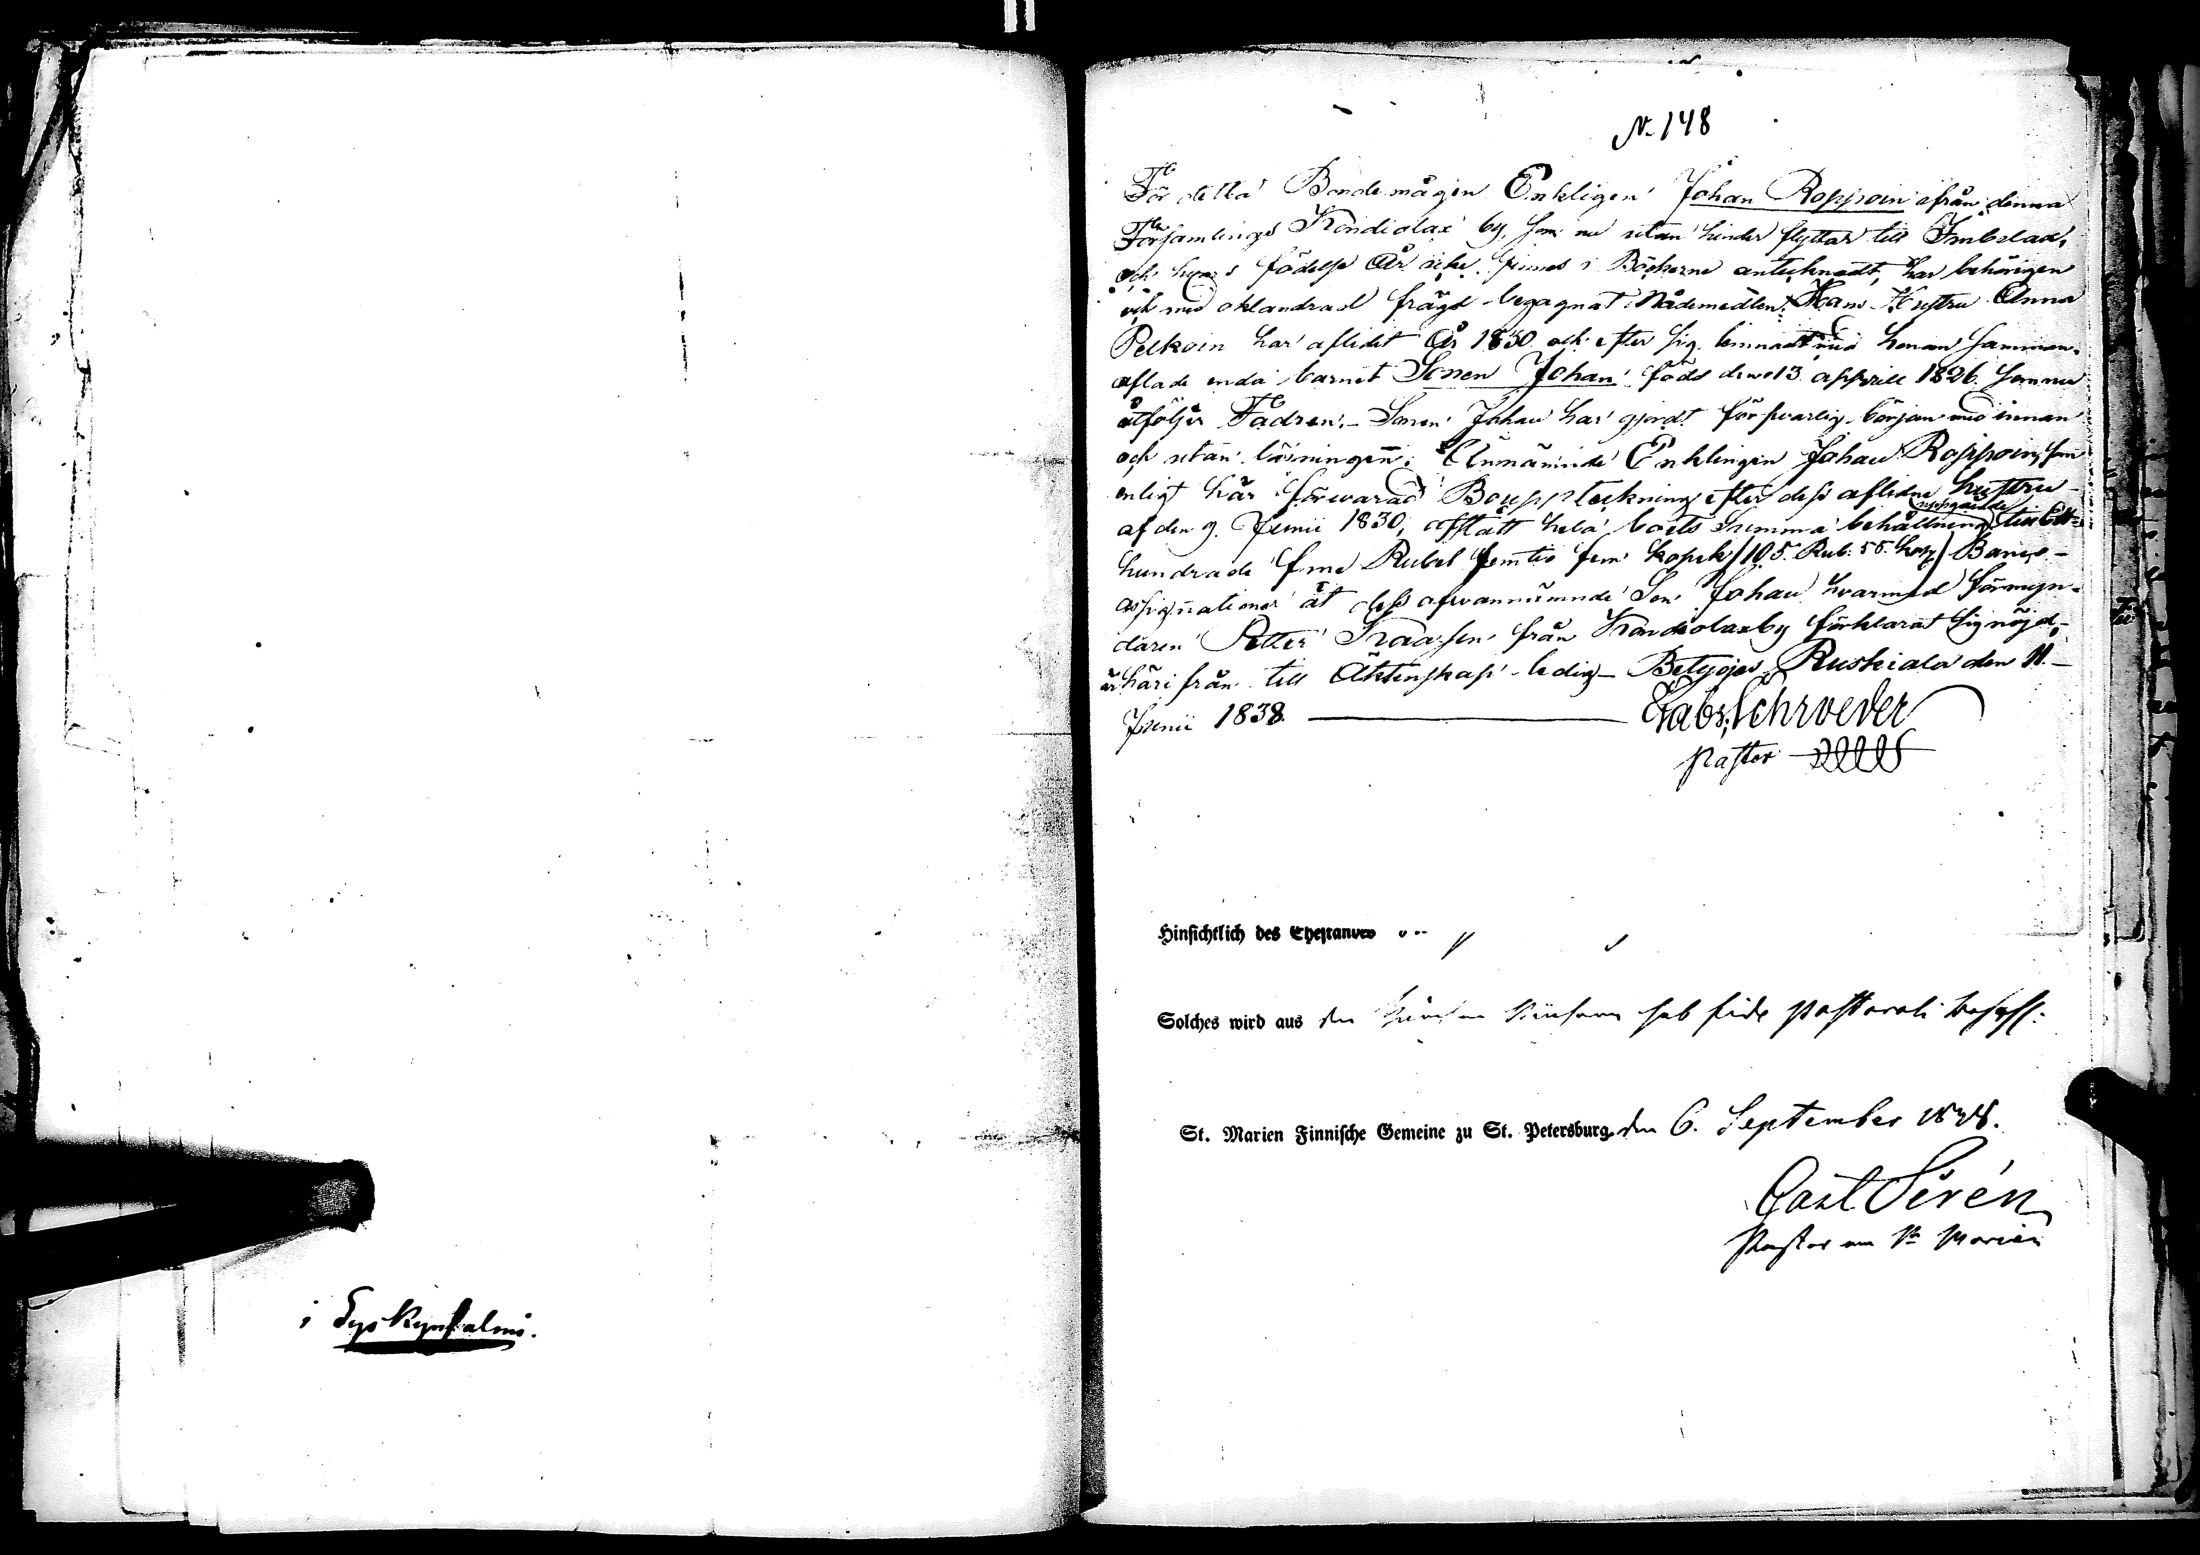 i Syskynsalmi.
N. 148
För detta Bondemågen Enkligen Johan Roppoin ifrån denna
Församlings Kondiolax by, som nu utan hinder flyttar till Imbelax,
och hvars födelse År icke finnes i Böckerne anteknadt, har behörigen
och med oklandrad frägd begagnat Nådemedlen. Hans Hustru Anna
Pelkoin har aflidit År 1830 och efter sig lemnadt med honom samman-
aflade enda barnet Sonen Johan född den 13 aprill 1826. som nu
åtföljer Fadren. – Sonen Johan har gjordt försvarlig början med innan
och utan läsningen. Ännämnde Enklingen Johan Roppoin, som
enligt här förvarad Bouppteckning efter dess aflidne hustru
af den 9. Junii 1830, afstått hela boets Summa behållning uppgående till Ett-
hundrade fem Rubel femtio fem kopek /105. Rub. 55. kop/ Banco-
assignationer åt dess ofvannämnde Son Johan hvarmed förmyn-
daren Petter Kaasen från Kondiolaxby förklarat sig nöjd,
är härifrån till Äktenskap ledig – Betygas, Ruskiala den 11.
Junii 1838. Gabr. Schroeder
Pastor
Hinsichtlich des Ehestandes
Solches wird aus den sub fide pastorali
St. Marien Finnische Gemeine zu St. Petersburg. den 6. September 1838.
Carl Sirén
Pastor an St. Marien